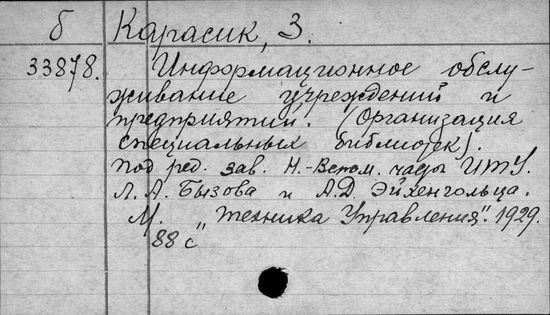 б Карасик, З.
33878. Информационное обслу-
живание учреждений и
предприятий. (Организация
специальных библиотек).
Под ред. зав. Н.-Вспом. части ИТУ.
Л. А. Бызова и А.Д Эйхенгольца.
М. „Техника Управления". 1929.
88 с